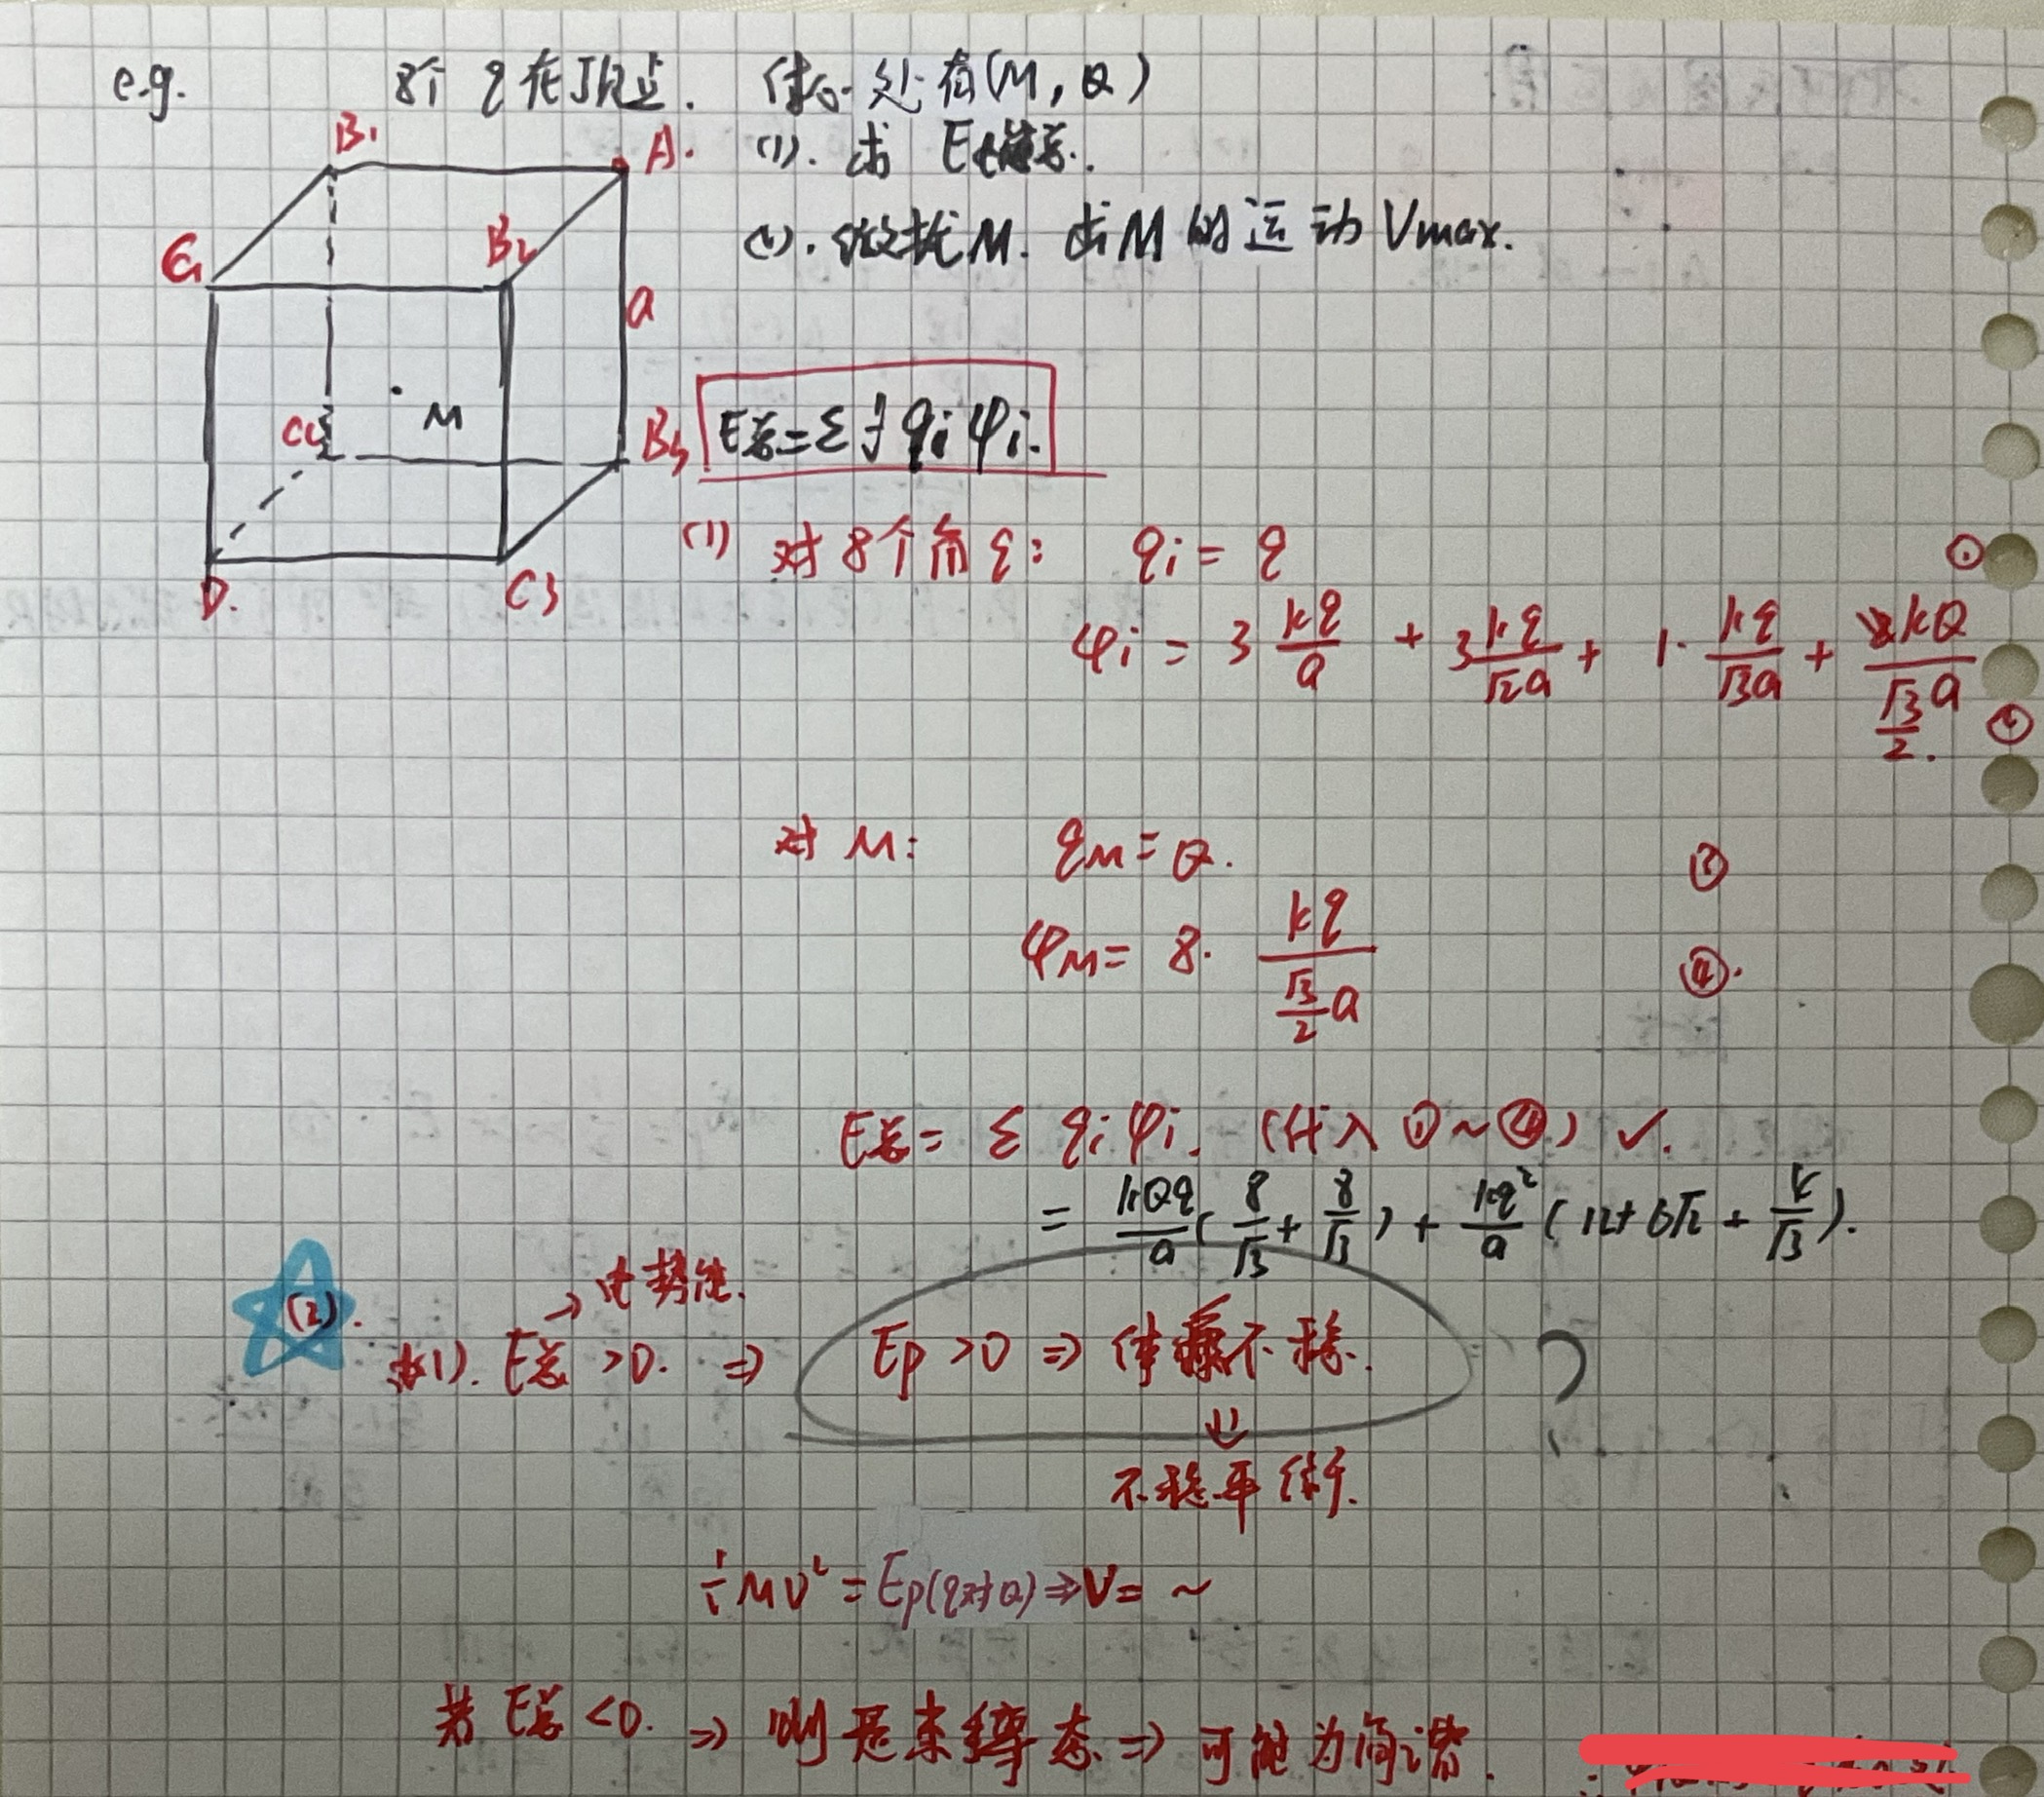 e.g. 8个 q 在顶点. 体心处有(M, Q)
(1). 求 E电势总.
(2). 微扰M. 求M的运动Vmax.
B₁ A.
C₁ B₂
a
C₂ M B₃
D. C₃
E总=Σ½ qᵢ φᵢ.
(1) 对8个角q: qᵢ = q ①
φᵢ = 3 kq/a + 3 kq/√2a + 1· kq/√3a + kQ/(√3/2 a) ②
对 M: q_M = Q. ③
φ_M = 8· kq/(√3/2 a) ④.
E总 = Σ qᵢ φᵢ. (代入 ①~④) ✓.
= kQq/a (8/√3 + 8/√3) + kq²/a (12+6√2 + 4/√3).
(2). → 电势能.
由(1). E总 >0. ⇒ Ep >0 ⇒ 体系不稳. ?
⇓
不稳平衡.
½MV² = Ep(q对Q) ⇒ V= ~
若 E总 <0. ⇒ 则是束缚态 ⇒ 可能为简谐.